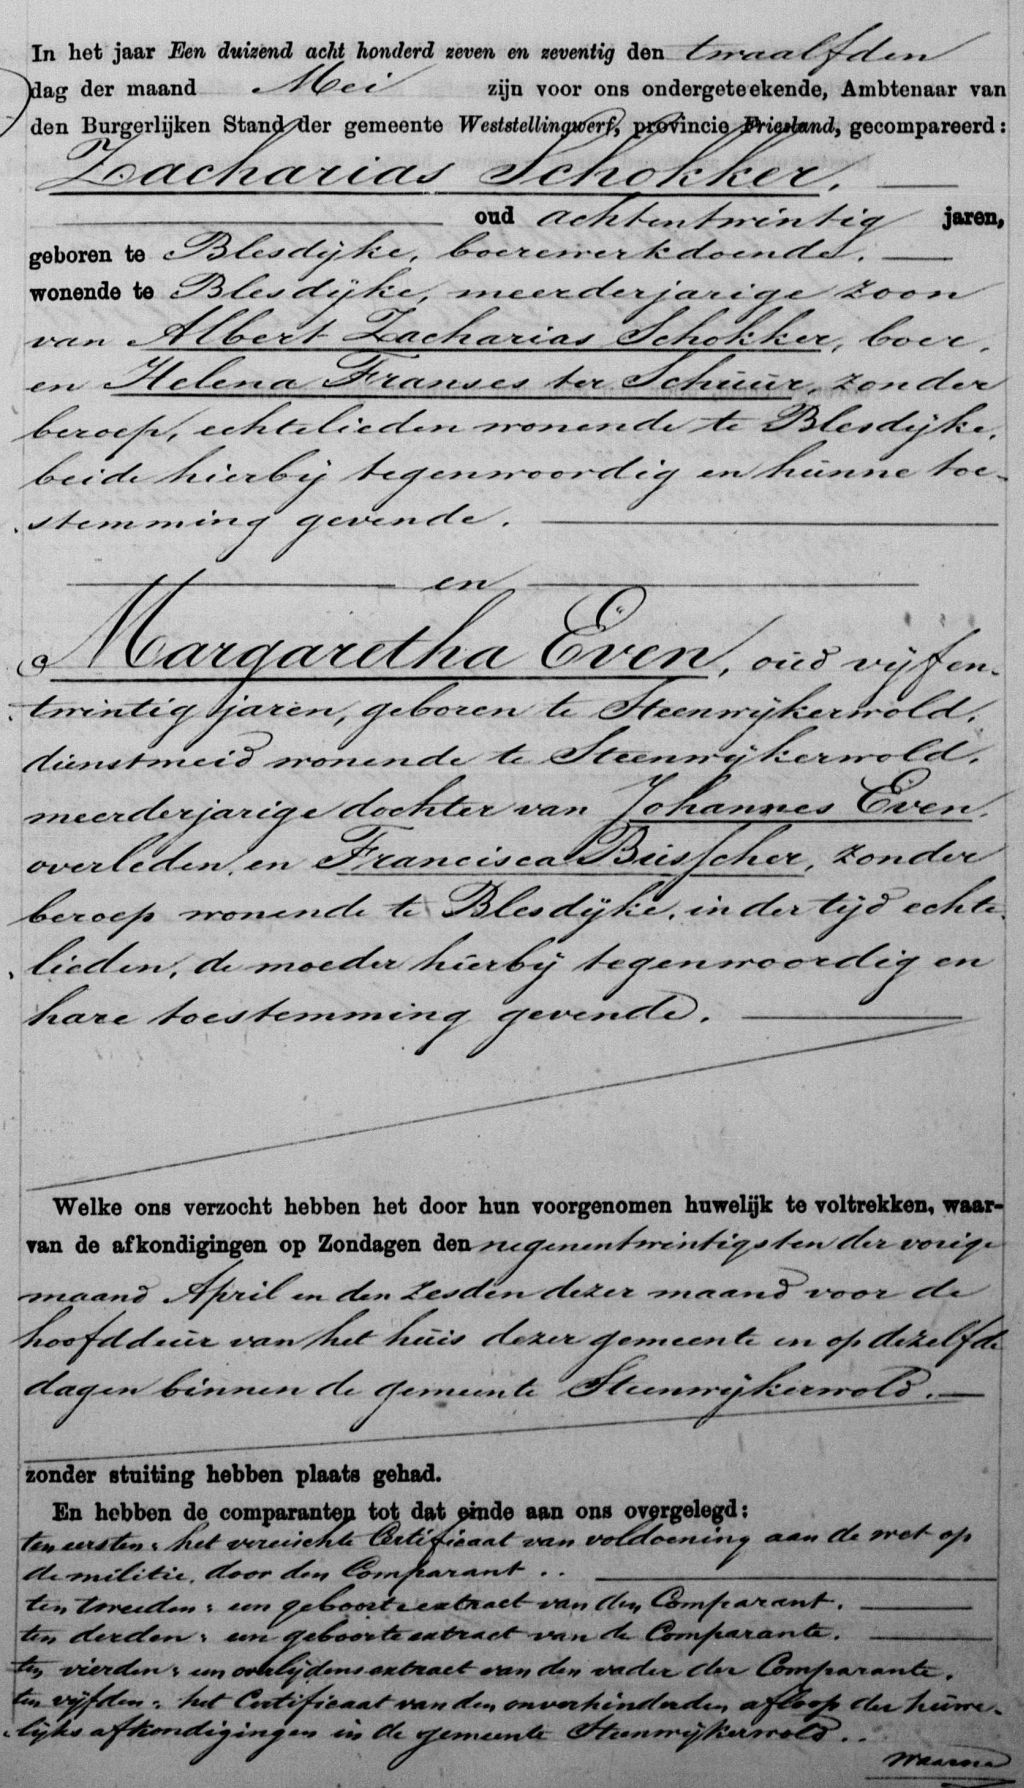 In het jaar Een duizend acht honderd zeven en zeventig den twaalfden
dag der maand Mei zijn voor ons ondergeteekende, Ambtenaar van
den Burgerlijken Stand der gemeente Weststellingwerf, provincie Friesland, gecompareerd:
Zacharias Schokker,
oud achtentwintig jaren,
geboren te Blesdijke, boerewerkdoende,
wonende te Blesdijke, meerderjarige zoon
van Albert Zacharias Schokker, boer,
en Helena Franses ter Schuur, zonder
beroep, echtelieden wonende te Blesdijke,
beide hierbij tegenwoordig en hunne toe-
stemming gevende.
en
Margaretha Even, oud vijfen-
twintig jaren, geboren te Steenwijkerwold,
dienstmeid wonende te Steenwijkerwold,
meerderjarige dochter van Johannes Even,
overleden, en Francisca Busscher, zonder
beroep wonende te Blesdijke, in der tijd echte-
lieden, de moeder hierbij tegenwoordig en
hare toestemming gevende.
Welke ons verzocht hebben het door hun voorgenomen huwelijk te voltrekken, waar-
van de afkondigingen op Zondagen den negenentwintigsten der vorige
maand April en den zesden dezer maand voor de
hoofddeur van het huis dezer gemeente en op dezelfde
dagen binnen de gemeente Steenwijkerwold.
zonder stuiting hebben plaats gehad.
En hebben de comparanten tot dat einde aan ons overgelegd:
ten eersten: het vereischte Certificaat van voldoening aan de wet op
de militie, door den Comparant..
ten tweeden: een geboorteextract van den Comparant.
ten derden: een geboorteextract van de Comparante.
ten vierden: een overlijdensextract van den vader der Comparante.
ten vijfden: het Certificaat van den onverhinderden afloop der huwe-
lijks afkondigingen in de gemeente Steenwijkerwold..
Waarna